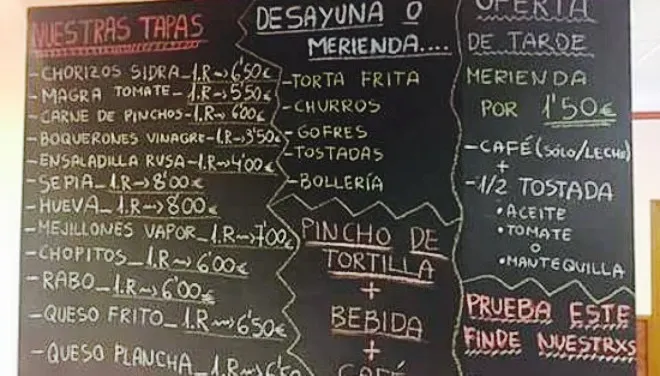 NUESTRAS TAPAS
-CHORIZOS SIDRA_1.R→6'50€
-MAGRA TOMATE-1.R→5'50€
-CARNE DE PINCHOS-1.R→6'00€
-BOQUERONES VINAGRE-1.R→3'50€
-ENSALADILLA RUSA-1.R→4'00€
-SEPIA_1.R→8'00€
-HUEVA_1.R→8'00€
-MEJILLONES VAPOR_1.R→7'00€
-CHOPITOS_1.R→6'00€
-RABO_1.R→6'00€
-QUESO FRITO_1.R→6'50€
-QUESO PLANCHA_1.R→6'50
DESAYUNA O
MERIENDA....
-TORTA FRITA
-CHURROS
-GOFRES
-TOSTADAS
-BOLLERÍA
PINCHO DE
TORTILLA
+
BEBIDA
+
CAFÉ
OFERTA
DE TARDE
MERIENDA
POR 1'50€
-CAFÉ(SÓLO/LECHE)
+
-1/2 TOSTADA
•ACEITE
•TOMATE
O
•MANTEQUILLA
PRUEBA ESTE
FINDE NUESTRXS